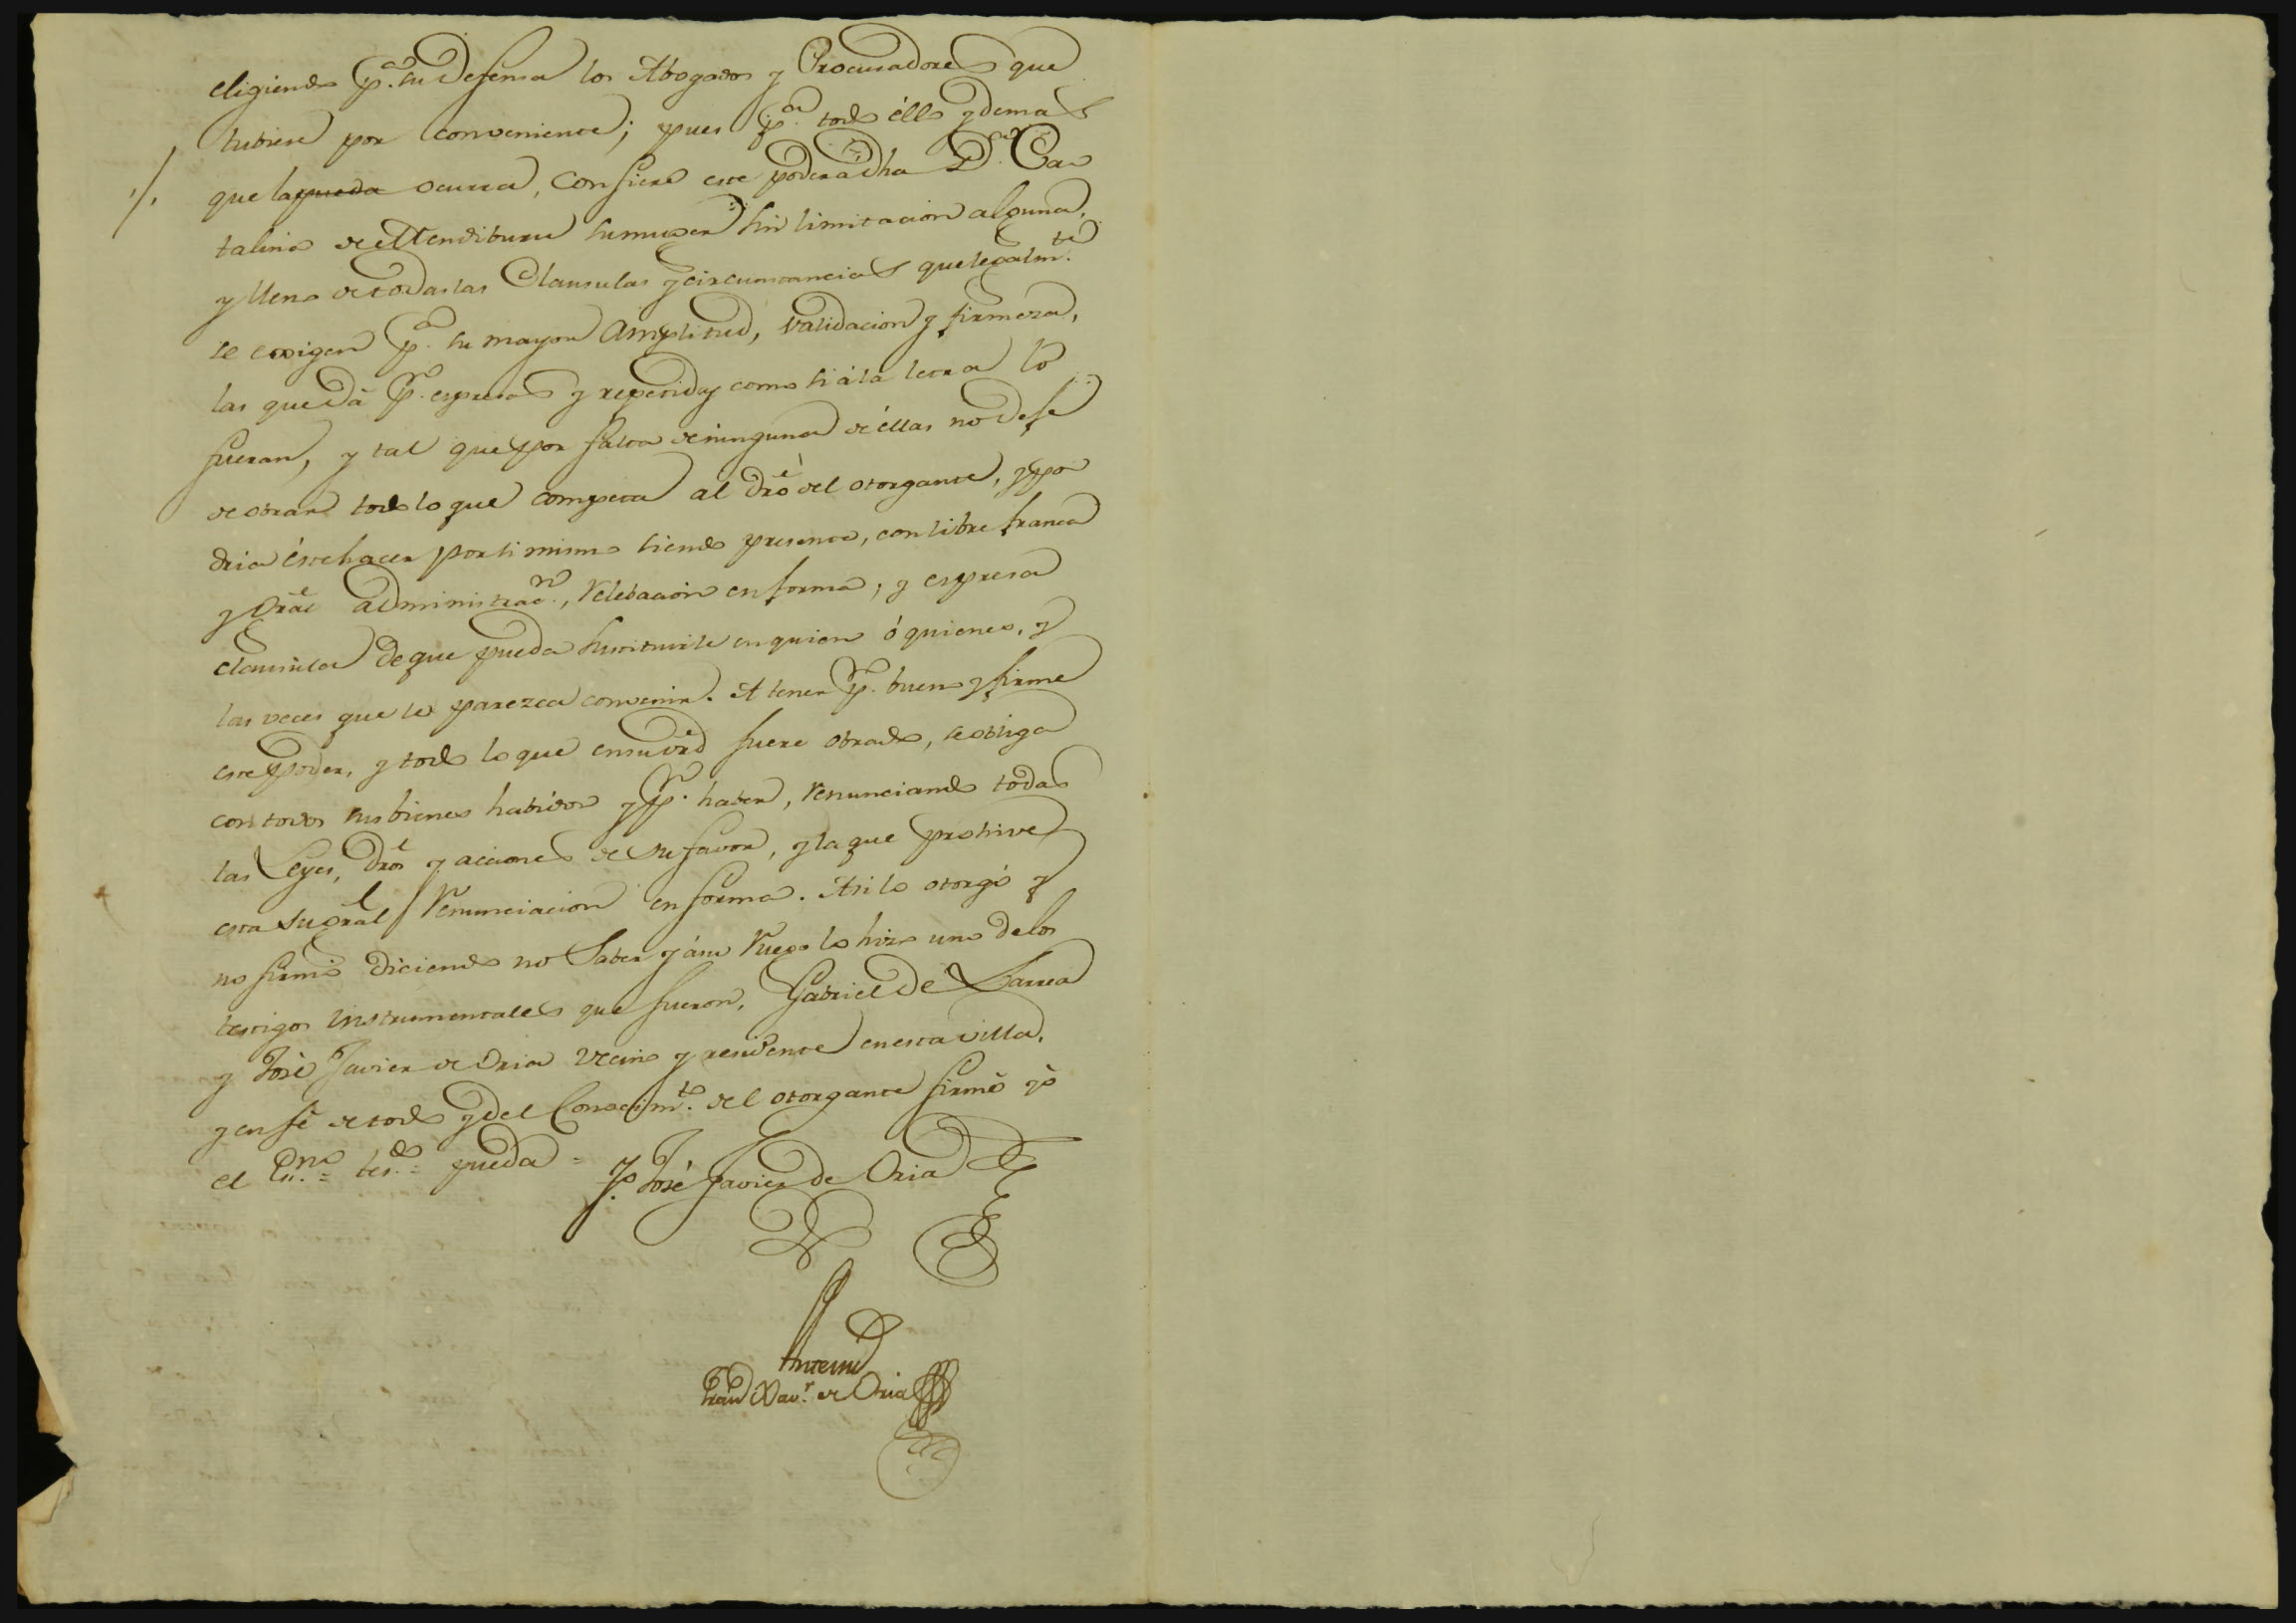 eligiendo p.ª su defensa los Abogados y Procuradores que
tubiere por conveniente; pues p.ª todo éllo y demas
que la pueda ocurra, confiere este poder á dha D.ª Ca
talina de Mendiburu su muger sin limitacion alguna,
y lleno de todas las Clausulas y circunstancias que legalm.te
se exigen p.ª su mayor amplitud, validacion y firmeza,
las que dá p.r espresas y repetidas como si á la letra lo
fueran, y tal que por falta de ninguna de éllas no deje
de obrar todo lo que competa al dro del otorgante, y po
dria éste hacer por si mismo siendo presente, con libre franca
y gral administrac.n, relebacion en forma, y espresa
clausula de que pueda sustituirle en quien ó quienes, y
las veces que le parezca convenir. A tener p.r bueno y firme
este poder, y todo lo que en su vrd fuere obrado, se obliga
con todos sus bienes habidos y p.r haber, renunciando todas
las Leyes, dros y acciones de su favor, y la que prohive
esta su gral renunciacion en forma. Asi lo otorgó y
no firmó diciendo no saber y á su ruego lo hizo uno de los
testigos instrumentales que fueron, Gabriel de Larrea
y José Javier de Oria vecino y residente en esta villa,
y en fé de todo y del Conocim.to del otorgante firmé yo
el En.no = tes.do = pueda =
José Javier de Oria
Antemi
Xav.r de Oria